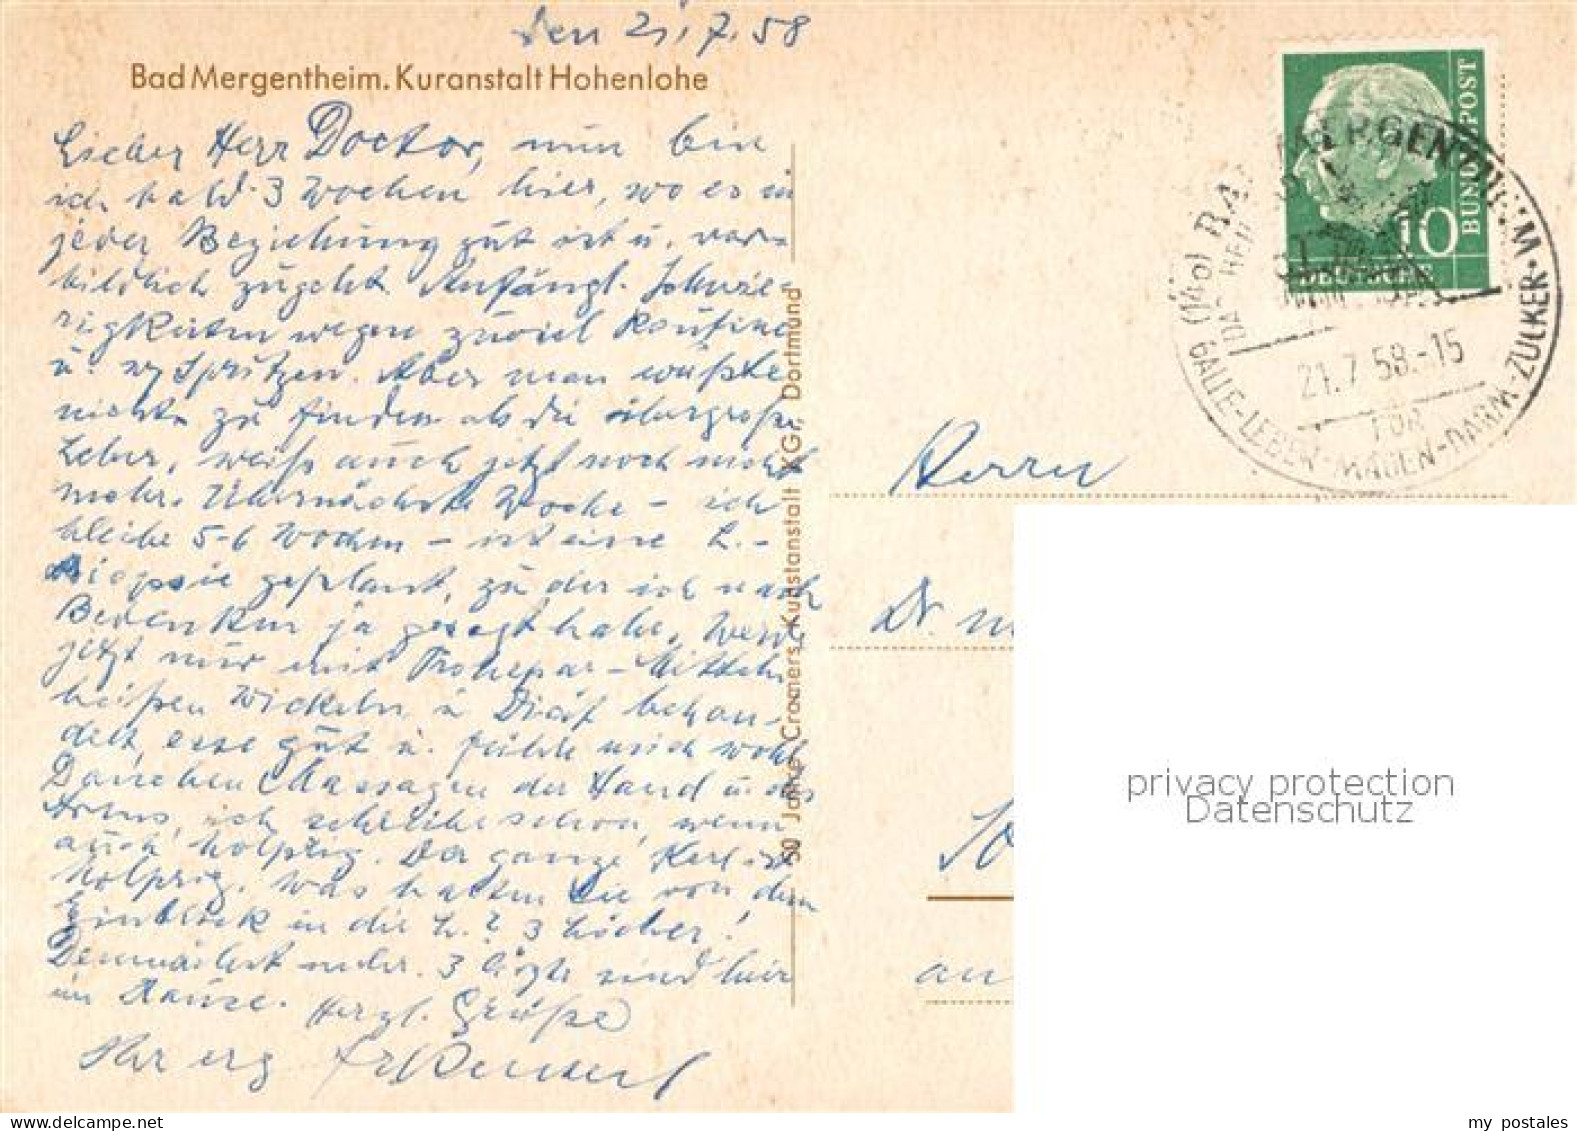 den 21.7.58
Bad Mergentheim. Kuranstalt Hohenlohe
Lieber Herr Doctor, nun bin
ich bald 3 Wochen hier, wo es in
jeder Beziehung gut ist u. vor-
bildlich zugeht. Anfängl. Schwie-
rigkeiten wegen zuviel Routine
u. Spritzen. Aber man wußte
nichts zu finden als die übergroße
Leber, weiß auch jetzt noch nicht
mehr. Übernächste Woche - ich
bleibe 5-6 Wochen - ist eine L.-
Biopsie geplant, zu der ich nach
Bedenken ja gesagt habe. Werde
jetzt nur mit Prohepar-Mitteln
heißen Wickeln u Diät behan-
delt, esse gut u. fühle mich wohl
Daneben Massagen der Hand u. des
Arms, ich schreibe schon, wenn
auch holprig. Der ganze Kerl ist
holprig. Was halten Sie von dem
Einblick in die L.? 3 Löcher!
Demnächst mehr. 3 Ärzte sind hier
im Hause. Herzl. Grüße
Ihr erg
50 Jahre Cramers Kunstanstalt KGr, Dortmund
10
BUNDESPOST
DEUTSCHE
(14a) BAD MERGENTHEIM
DAS HEIL
21.7.58.-15
FÜR
GALLE-LEBER-MAGEN-DARM-ZUCKER
Herrn
Dr. m
an
privacy protection
Datenschutz
my postales